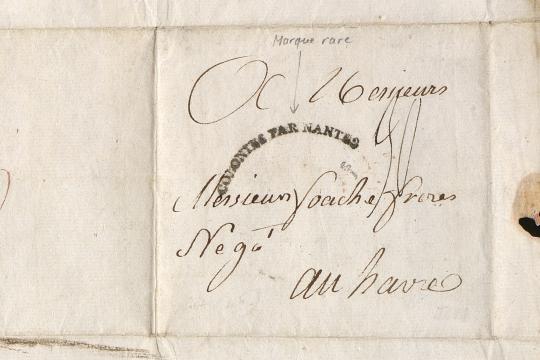 Marque rare
A Messieurs
COLONIES PAR NANTES
Messieurs foache freres
Negö.t
au havre